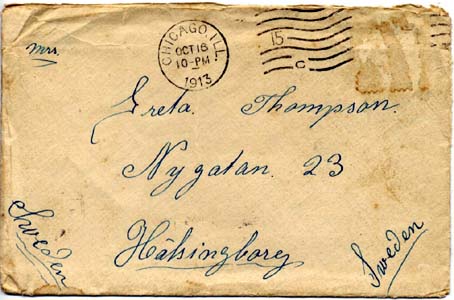 Mrs.
CHICAGO, ILL.
OCT 16
10-PM
1913
15
C
Greta Thompson.
Nygatan. 23
Hälsingborg
Sweden
Sweden